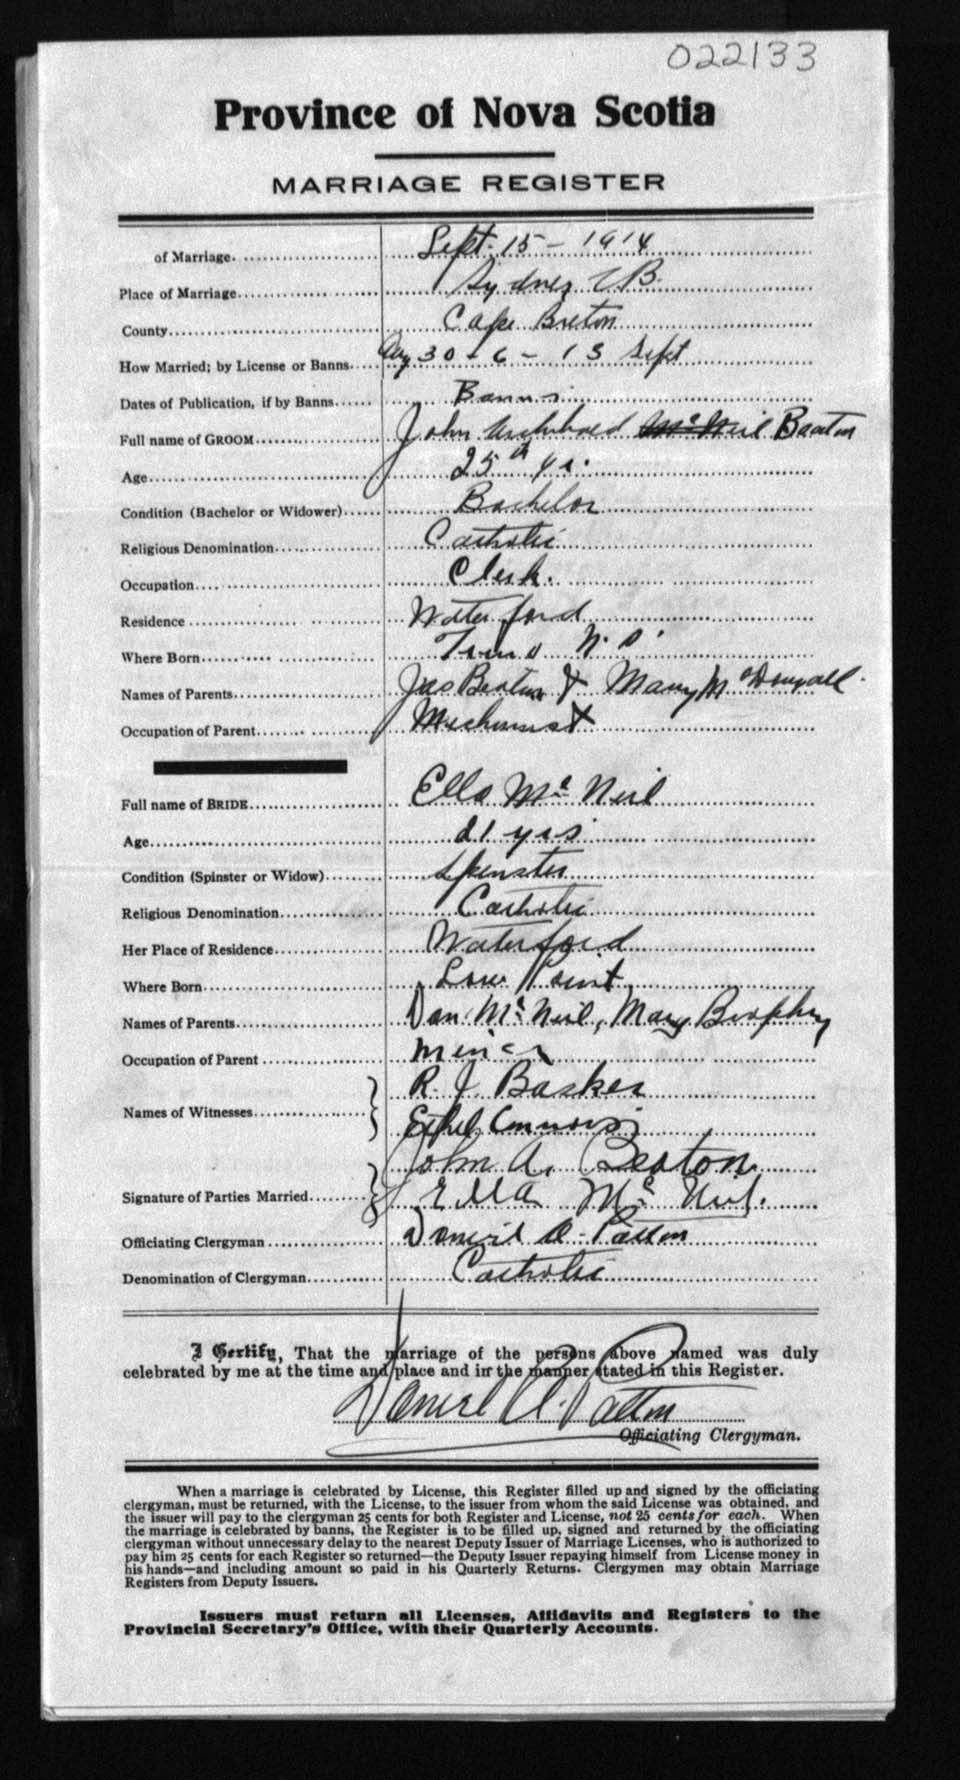 022133
Province of Nova Scotia
MARRIAGE REGISTER
of Marriage. Sept. 15 - 1914
Place of Marriage Sydney C B.
County Cape Breton
How Married; by License or Banns. Aug 30 - 6 - 13 Sept
Dates of Publication, if by Banns Banns
Full name of GROOM John Archibald McNeil Beaton
Age 25 yrs.
Condition (Bachelor or Widower) Bachelor
Religious Denomination Catholic
Occupation Clerk.
Residence Waterford
Where Born Truro N. S.
Names of Parents Jas Beaton & Mary McDougall
Occupation of Parent Machinist
Full name of BRIDE Ella McNeil
Age 21 yrs
Condition (Spinster or Widow) Spinster
Religious Denomination Catholic
Her Place of Residence Waterford
Where Born Low Point
Names of Parents Dan McNeil, Mary Brophy
Occupation of Parent Miner
R. J. Basker
Names of Witnesses
Ethel Connors
John A. Beaton
Signature of Parties Married Ella McNeil.
Officiating Clergyman Daniel A. Patton
Denomination of Clergyman Catholic
I Certify, That the marriage of the persons above named was duly
celebrated by me at the time and place and in the manner stated in this Register.
Daniel A. Patton
Officiating Clergyman.
When a marriage is celebrated by License, this Register filled up and signed by the officiating
clergyman, must be returned, with the License, to the issuer from whom the said License was obtained, and
the issuer will pay to the clergyman 25 cents for both Register and License, not 25 cents for each. When
the marriage is celebrated by banns, the Register is to be filled up, signed and returned by the officiating
clergyman without unnecessary delay to the nearest Deputy Issuer of Marriage Licenses, who is authorized to
pay him 25 cents for each Register so returned—the Deputy Issuer repaying himself from License money in
his hands—and including amount so paid in his Quarterly Returns. Clergymen may obtain Marriage
Registers from Deputy Issuers.
Issuers must return all Licenses, Affidavits and Registers to the
Provincial Secretary's Office, with their Quarterly Accounts.